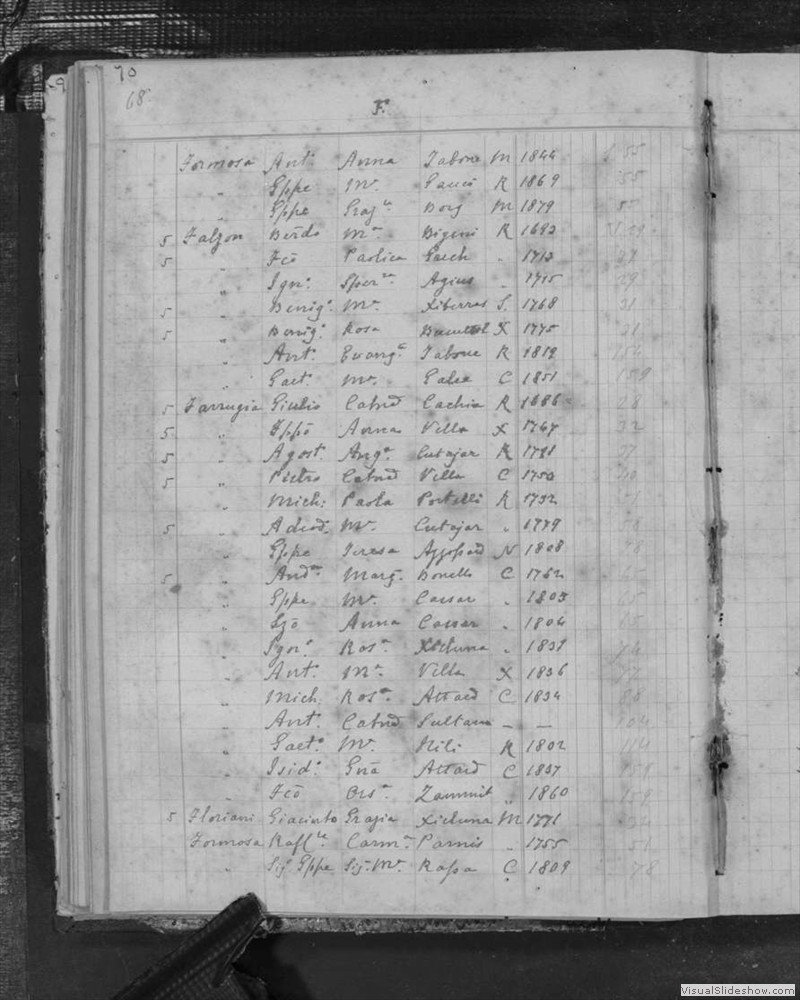 70
68
F.
Formosa Antº Anna Tabone M 1844 55
" Gppe Mª Gauci R 1869 55
" Gppe Grazª Borg M 1879
5 Falzon Berdo Mª R 1693
5 " Fcō Paolica Zech " 1713 27
" Ignº Agius " 1715 29
5 " Benigº Mª Xiberras S. 1768 31
5 " Benigº Rosa X 1775 31
" Antº Evangª Tabone R 1819 154
" Gaetº Mª Galea C 1851 159
5 Farrugia Giulio Catnd Cachia R 1686 28
5 " Gppō Anna Vella X 1747 32
5 " Agostº Angª Cutajar R 27
5 " Pietro Catnd Vella C 1750 40
" Mich: Paola Portelli R 1792
5 " Adeod. Mª Cutajar " 1779
" Gppe Teresa Azzopard N 1808
5 " Andª Marg. Bonello C 1752
" Gppe Mª Cassar " 1803
" Gjō Anna Cassar " 1804
" Ignº Rosª Xicluna " 1831
" Antº Mª Vella X 1836
" Mich Rosª Attard C 1834
" Antº Catnd Sultana – –
" Gaetº Mª Mili R 1802
" Isidº Gnā Attard C 1837
" Fcō Orsª Zammit " 1860
5 Floriani Giacinto Grazia Xicluna M 1771
Formosa Rafflº Carmª Parnis " 1755 51
" Sigr Gppe Sig. Mª C 1809 78
VisualSlideshow.com